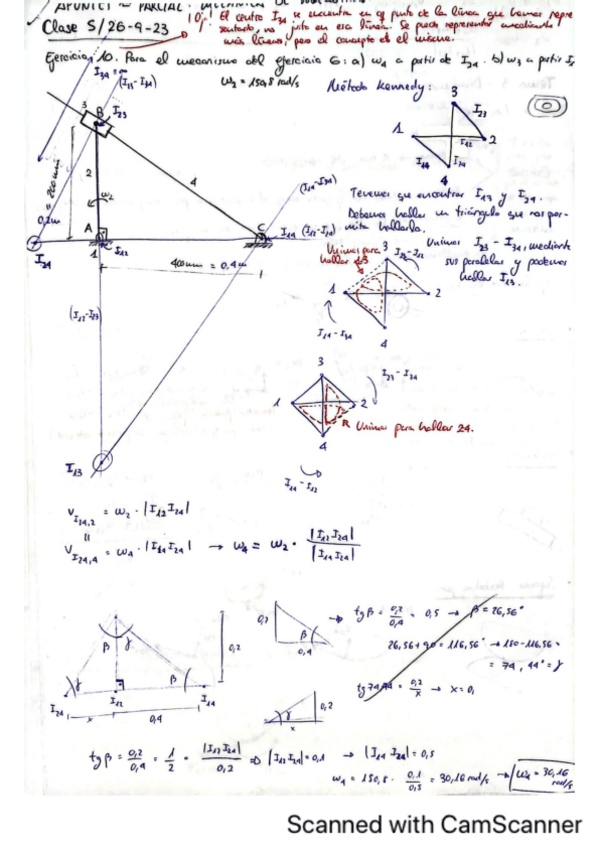 APUNTES 2º PARCIAL. MECÁNICA DE
Clase 5/26-9-23
10': El centro I34 se encuentra en el punto de la línea que hemos repre
sentado, no en esa línea. Se puede representar mediante
más líneas, pero el concepto es el mismo.
Ejercicio 10. Para el mecanismo del ejercicio 6: a) ω4 a partir de I24. b) ω3 a partir I
ω2 = 150,8 rad/s
Método Kennedy:
I34 = ∞
(I13-I34)
3
B
I23
2
ω2
4
= 200mm
0,2m
A
1
I12
C
I14 (I12-I14)
(I14-I34)
I24
400mm = 0,4m
(I12-I23)
I13
3
I23
1
I12
2
I14
I34
4
Tenemos que encontrar I13 y I24.
Debemos hallar un triángulo que nos per-
mita hallarlo.
Unimos para
hallar 13
3
I23-I12
1
2
I14-I34
4
Unimos I23 - I34, mediante
sus paralelas y podemos
hallar I13.
3
I23-I34
1
2
4
Unimos para hallar 24.
I14-I12
vI24,2 = ω2 · |I12 I24|
"
vI24,4 = ω4 · |I14 I24| → ω4 = ω2 · |I12 I24| / |I14 I24|
β γ
0,2
γ
β
I24
I12
I14
x
0,4
0,2
β
0,4
→ tg β = 0,2/0,4 = 0,5 → β = 26,56°
26,56+90 = 116,56° → 180-116,56 =
= 74,44° = γ
γ
0,2
x
tg 74,44 = 0,2/x → x = 0,
tg β = 0,2/0,4 = 1/2 = |I12 I24|/0,2 ⇒ |I12 I24| = 0,1 → |I14 I24| = 0,5
ω4 = 150,8 · 0,1/0,5 = 30,16 rad/s → ω4 = 30,16 rad/s
Scanned with CamScanner